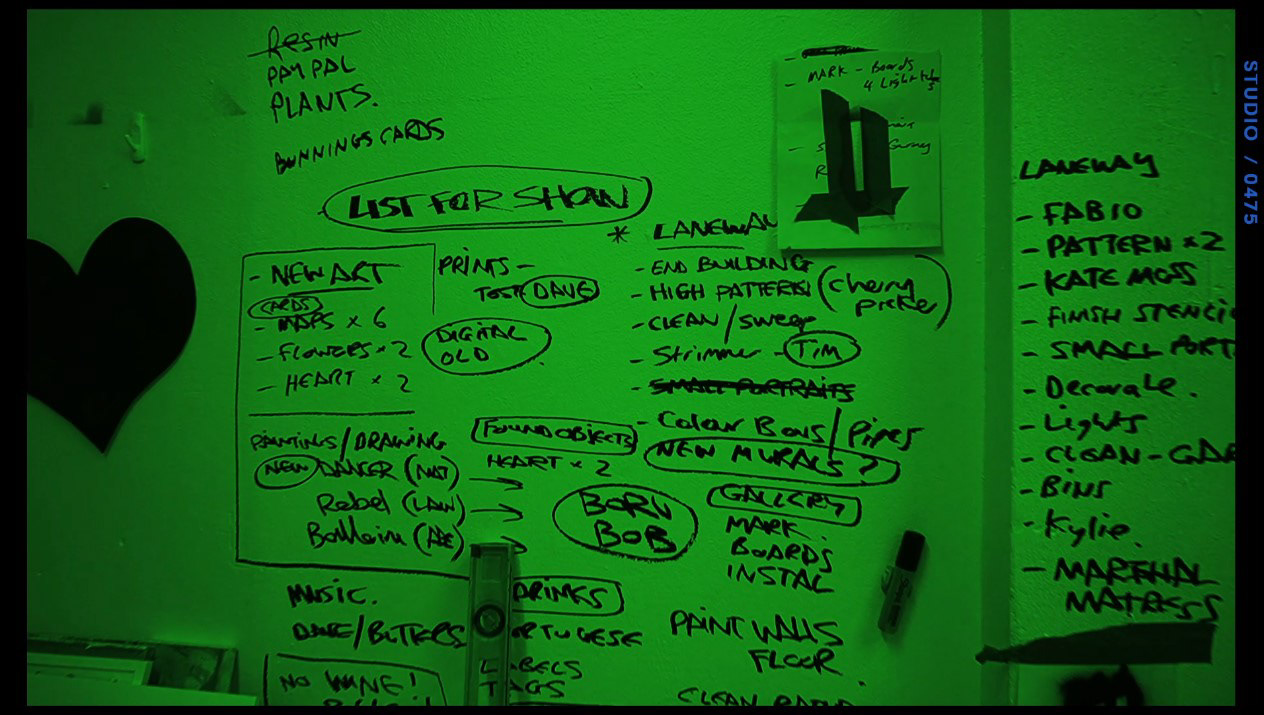 RESIN
PAYPAL
PLANTS.
BUNNINGS CARDS
LIST FOR SHOW
- NEW ART
CARDS
- MAPS x 6
- FLOWERS x 2
- HEART x 2
PRINTS -
TOSH DAVE
DIGITAL
OLD
PAINTINGS/DRAWING
NEW DANCER (NAT)
Rebel (LAW)
MUSIC.
DAVE/BUTTERS
NO WINE!
FOUND OBJECTS
HEART x 2
BORN
BOB
DRINKS
LABELS
TAGS
- MARK - Boards
4 Light
* LANEWAY
- END BUILDING
- HIGH PATTERN (cherry
picker)
- CLEAN/sweep
- Strimmer - TIM
- SMALL PORTRAITS
- Colour Bars/Pipes
NEW MURALS?
GALLERY
MARK.
BOARDS
INSTAL
PAINT WALLS
FLOOR.
CLEAN
LANEWAY
- FABIO
- PATTERN x 2
- KATE MOSS
- FINISH STENCI
- SMALL PORT
- Decorate.
- Lights
- CLEAN - GAR
- BINS
- Kylie.
- MARTHAL
MATRESS
STUDIO / 0475